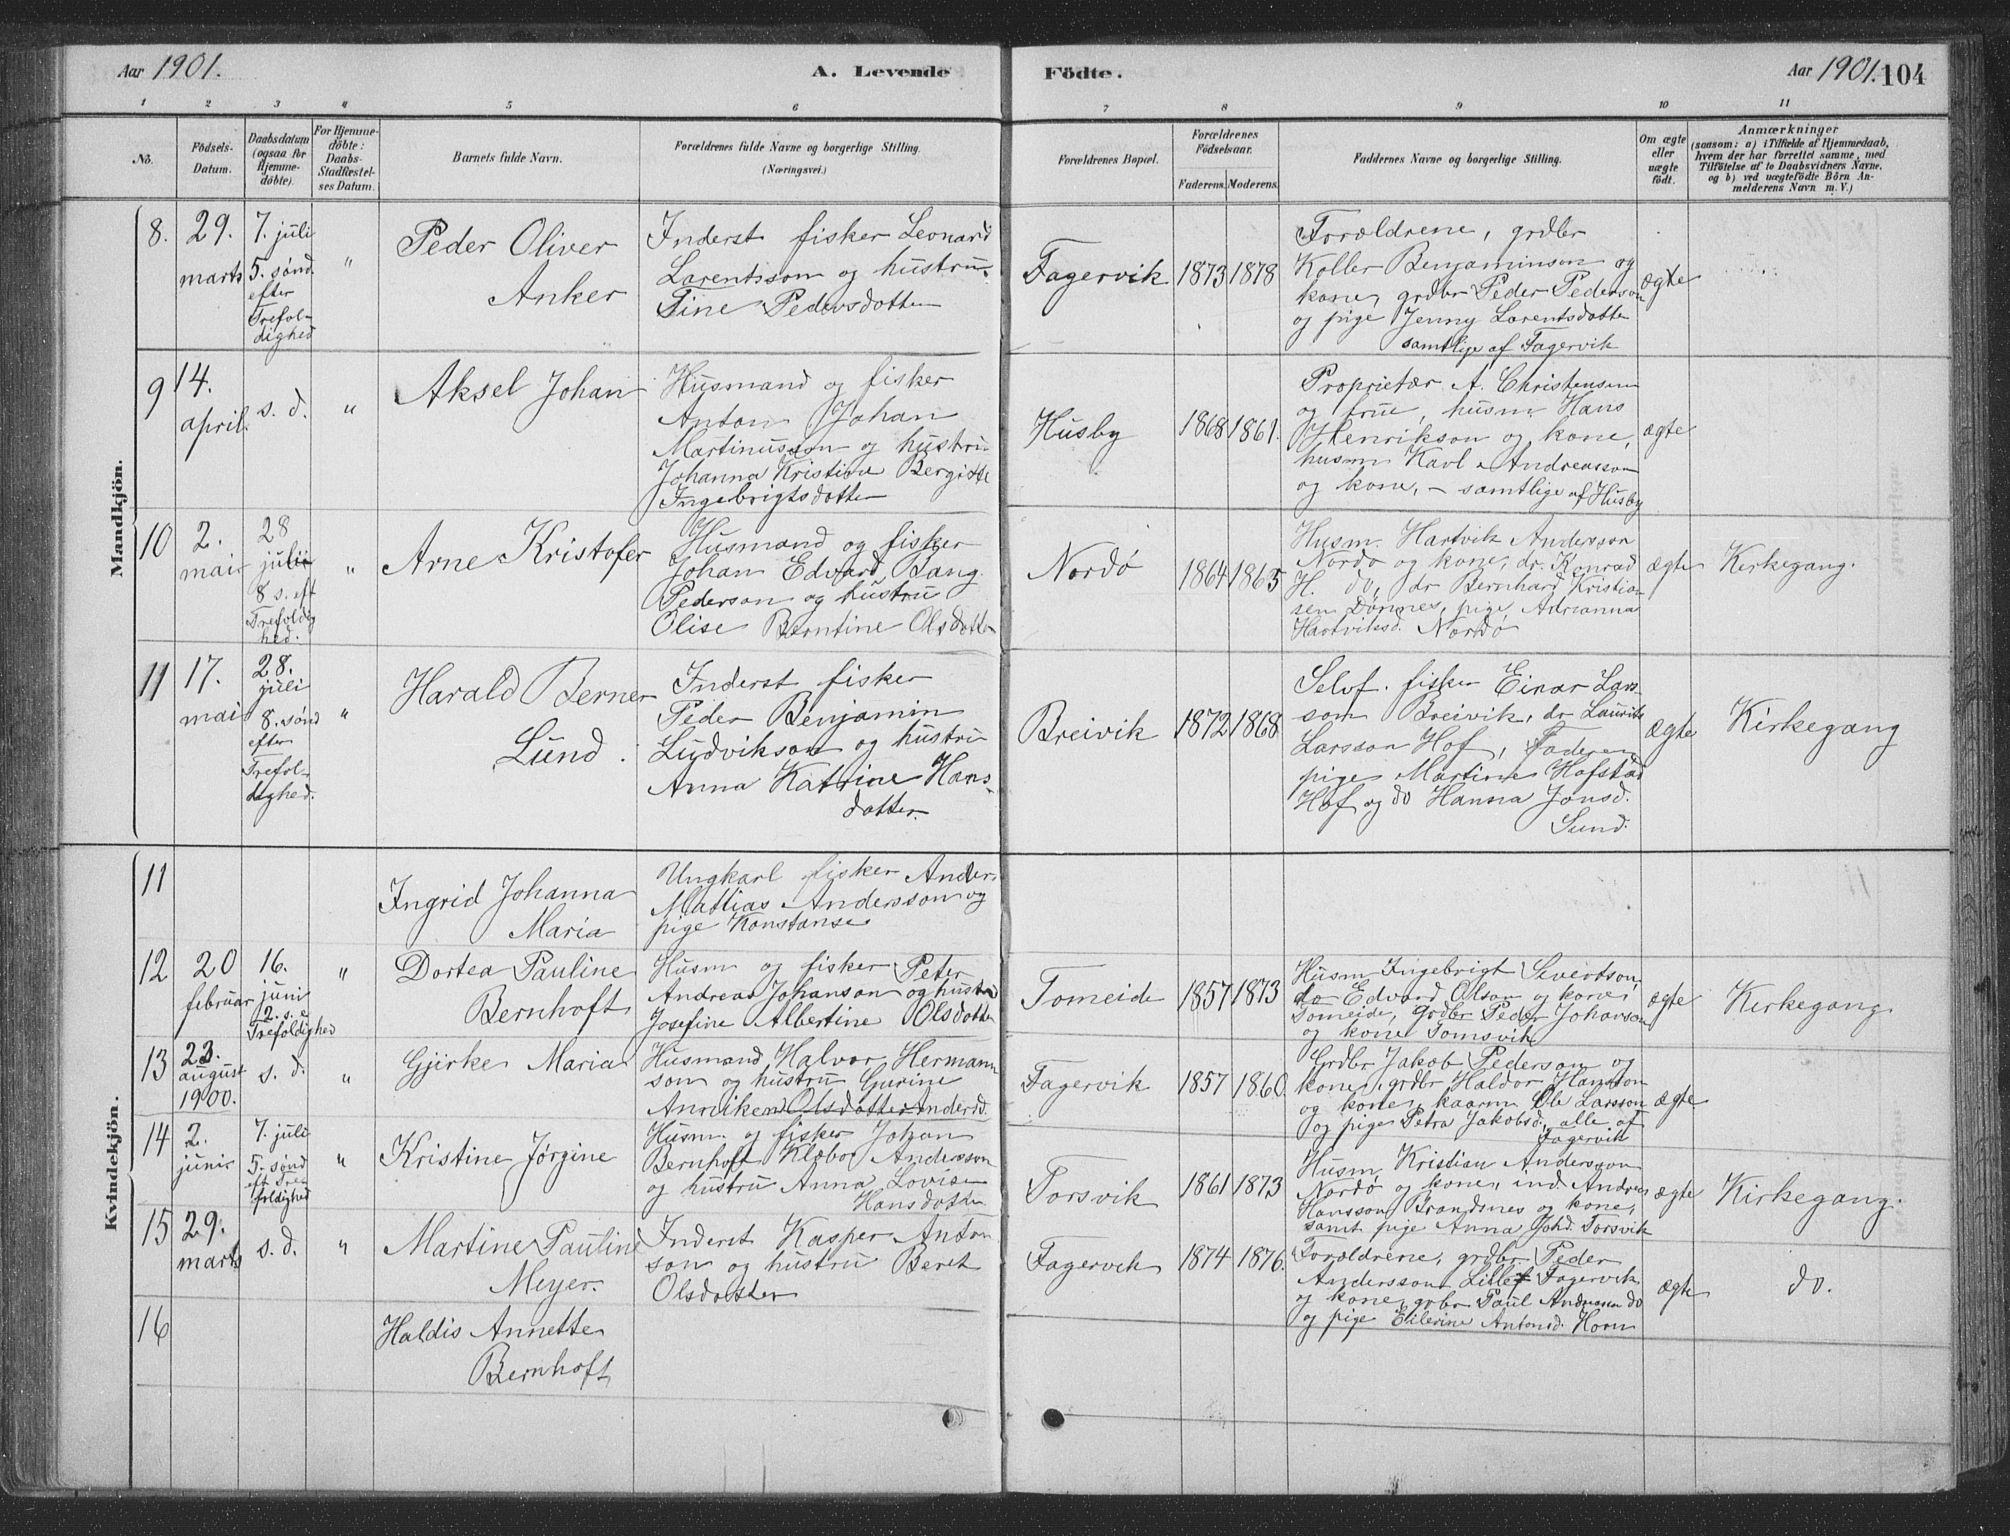 Aar 1901.
A. Levende
Födte.
Aar 1901.
104
1 2 3 4 5 6 7 8 9 10 11
No.
Födsels-
Datum.
Daabsdatum
(ogsaa for
Hjemme-
döbte).
For Hjemme-
döbte:
Daabs-
Stadfæstel-
ses Datum.
Barnets fulde Navn.
Forældrenes fulde Navne og borgerlige Stilling.
(Næringsvei.)
Forældrenes Bopæl.
Forældrenes
Födselsaar.
Faderens. Moderens.
Faddernes Navne og borgerlige Stilling.
Om ægte
eller
uægte
födt.
Anmærkninger
(saasom: a) i Tilfælde af Hjemmedaab,
hvem der har forrettet samme, med
Tilföielse af to Daabsvidners Navne,
og b) ved uægtefödte Börn An-
melderens Navn m. V.)
Mandkjön.
8.
29.
marts
7. juli
5. sønd.
efter
Trefol-
dighed
"
Peder Oliver
Anker
Inderst fisker Leonard
Larentsson og hustru
Tine Pedersdotter
Fagervik
1873
1878
Forældrene, grdbr
Koller Benjaminson og
kone, grdbr Peder Pederson
og pige Jenny Larentsdotter
samtlige af Fagervik
ægte
9
14.
april.
s. d.
"
Aksel Johan
Husmand og fisker
Anton Johan
Martinusson og hustru
Johanna Kristine Bergitte
Ingebrigtsdotter
Husby
1868
1861.
Proprietær A. Christensen
og frue, husm Hans
Henrikson og kone,
husm Karl Andreasson
og kone, - samtlige af Husby
ægte
10
2.
mai
28
juli
8 s. eft
Trefoldig
hed.
"
Arne Kristofer
Husmand og fisker
Johan Edvard Bang
Pederson og hustru
Olise Berntine Olsdotter
Nordø
1864
1865
Husm. Hartvik Andersson
Nordø og kone, dr. Konrad
H. do, dr Bernhard Kristian-
sen Dønnes, pige Adrianna
Hartviksd. Nordø
ægte
Kirkegang.
11
17.
mai
28.
juli
8. sønd
efter
Trefol-
dighed.
"
Harald Berner
Lund.
Inderst fisker
Peder Benjamin
Ludvikson og hustru
Anna Katrine Hans-
dotter.
Breivik
1872
1868
Selvf. fisker Einar Lars-
son Breivik, dr Laurits
Larsson Hof, Faderen
pige Martine Hofstad
Hof og do Hanna Jonsd.
Sund.
ægte
Kirkegang
Kvindekjön.
11
Ingrid Johanna
Maria
Ungkarl fisker Anders
Mattias Andersson og
pige Konstanse
12
20
februar
16.
juni
2. s. e
Trefoldighed
"
Dortea Pauline
Bernhoft
Husm og fisker Peter
Andreas Johanson og hustru
Josefine Albertine Olsdotter
Tomeide
1857
1873
Husm Ingebrigt Sivertson,
do Edvard Olson og kone,
Tomeide, Grdbr Peder Johanson
og kone Tomsvik
ægte
Kirkegang
13
23.
august
1900.
s. d.
"
Gjirke Maria
Husmand Halvor Hermann
son og hustru Gurine
Anniken Olsdotter Andersd.
Fagervik
1857
1860.
Grdbr Jakob Pederson og
kone, grdbr Haldor Hansson
og kone, kaarm Ole Larsson
og pige Petra Jakobsd., alle af
Fagervik
ægte
14
2.
juni
7. juli
5. sønd
eft Tre-
foldighed
"
Kristine Jørgine
Husm. og fisker Johan
Bernhoft Klæbo Andersson
og hustru Anna Lovise
Hansdotter
Torsvik
1861
1873
Husm Kristian Andersson
Nordø og kone, ind. Andreas
Hansson Brandsnes og kone,
samt pige Anna Johd. Torsvik
ægte
Kirkegang.
15
29.
marts
s. d.
"
Martine Pauline
Meyer.
Inderst Kasper Anton
son og hustru Beret
Olsdotter
Fagervik
1874
1876.
Forældrene, grdbr Peder
Andersson Lille Fagervik
og kone, grbr Paul Andreassen do
og pige Eilerine Antonsd. Horn
ægte
do.
16
Haldis Annette
Bernhoft